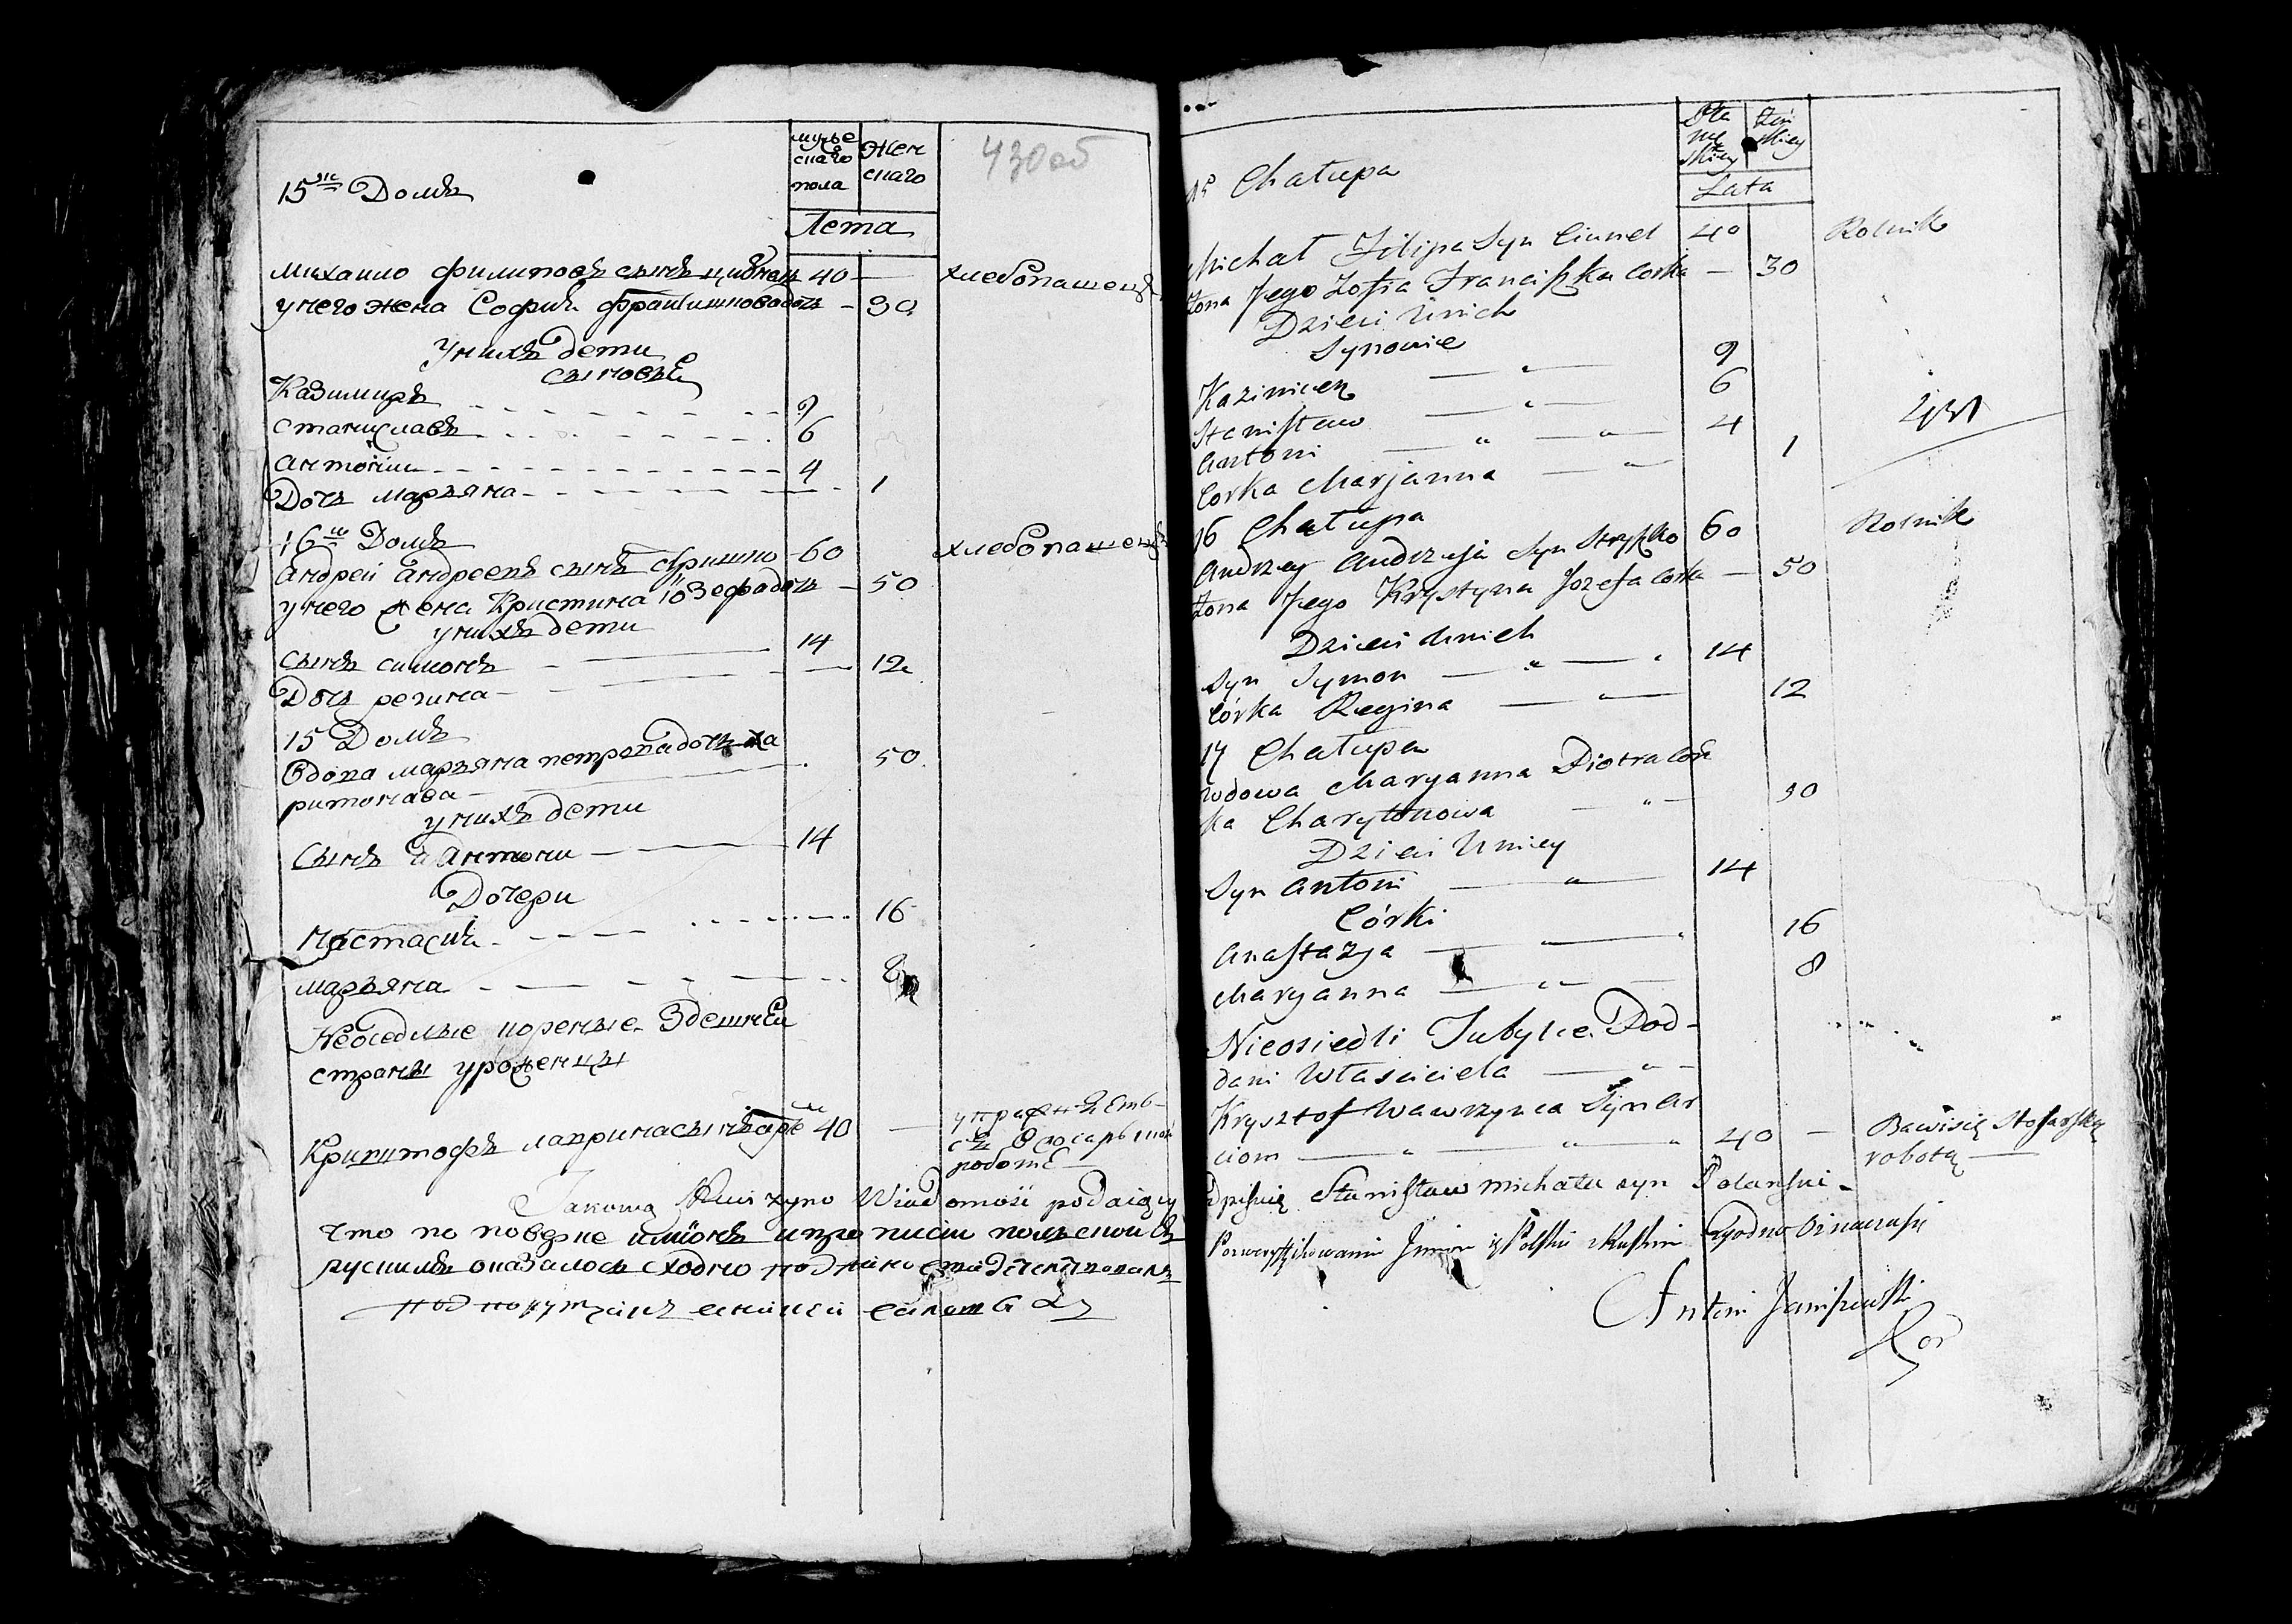 мужескаго пола
Женскаго
430об
15 Домъ
Лета
Михаило филиповъ сынъ 40 — хлебопашецъ
у него жена София францишкова дочь — 30
У нихъ дети
сыновья
Казимиръ 9
Станиславъ 6
Антоній 4
Дочь марьяна 1
16 Домъ
Андрей Андреевъ сынъ стришко 60 хлебопашецъ
у него жена Кристина Іозефа дочь — 50
у нихъ дети
сынъ симонъ 14
Дочь регина 12
15 Домъ
Вдова марьяна петрова дочь ха
ритонова 50
у нихъ дети
Сынъ Антони 14
Дочери
Настасия 16
марьяна 8
Неоседлые коренные Здешней
страны уроженцы
Криштофъ лаврина сынъ 40 — упражняется
въ столярной
работе
Takową wiadomość podaiący
что по поверке
русскимъ оказалось сходно
Pła
mę
skiey
Żeń
skiey
15 Chałupa
Lata
Michał Filipa Syn 40 Rolnik
Żona Jego Zofia Franciszka Corka — 30
Dzieci Unich
Synowie
Kazimierz 9
Stanisław 6
Antoni 4
Corka Marjanna 1
431
16 Chałupa
Andrzey Andrzeja Syn Stryszko 60 Rolnik
Żona Jego Krystyna Jozefa Corka — 50
Dzieci Unich
Syn Symon 14
Córka Regina 12
17 Chałupa
Wdowa Maryanna Piotra Cor
ka Charytonowa 50
Dzieci Uniey
Syn Antoni 14
Córki
Anastazya 16
Maryanna 8
Nieosiedli Tubylce Pod-
dani Własciciela
Krysztof Wawrzynca Syn Ar
ciom 40 — Bawisię Stolarską
robotą
Stanisław Michała syn Polanski
Polskim z Ruskim Zgodno
Antoni Janiszewski